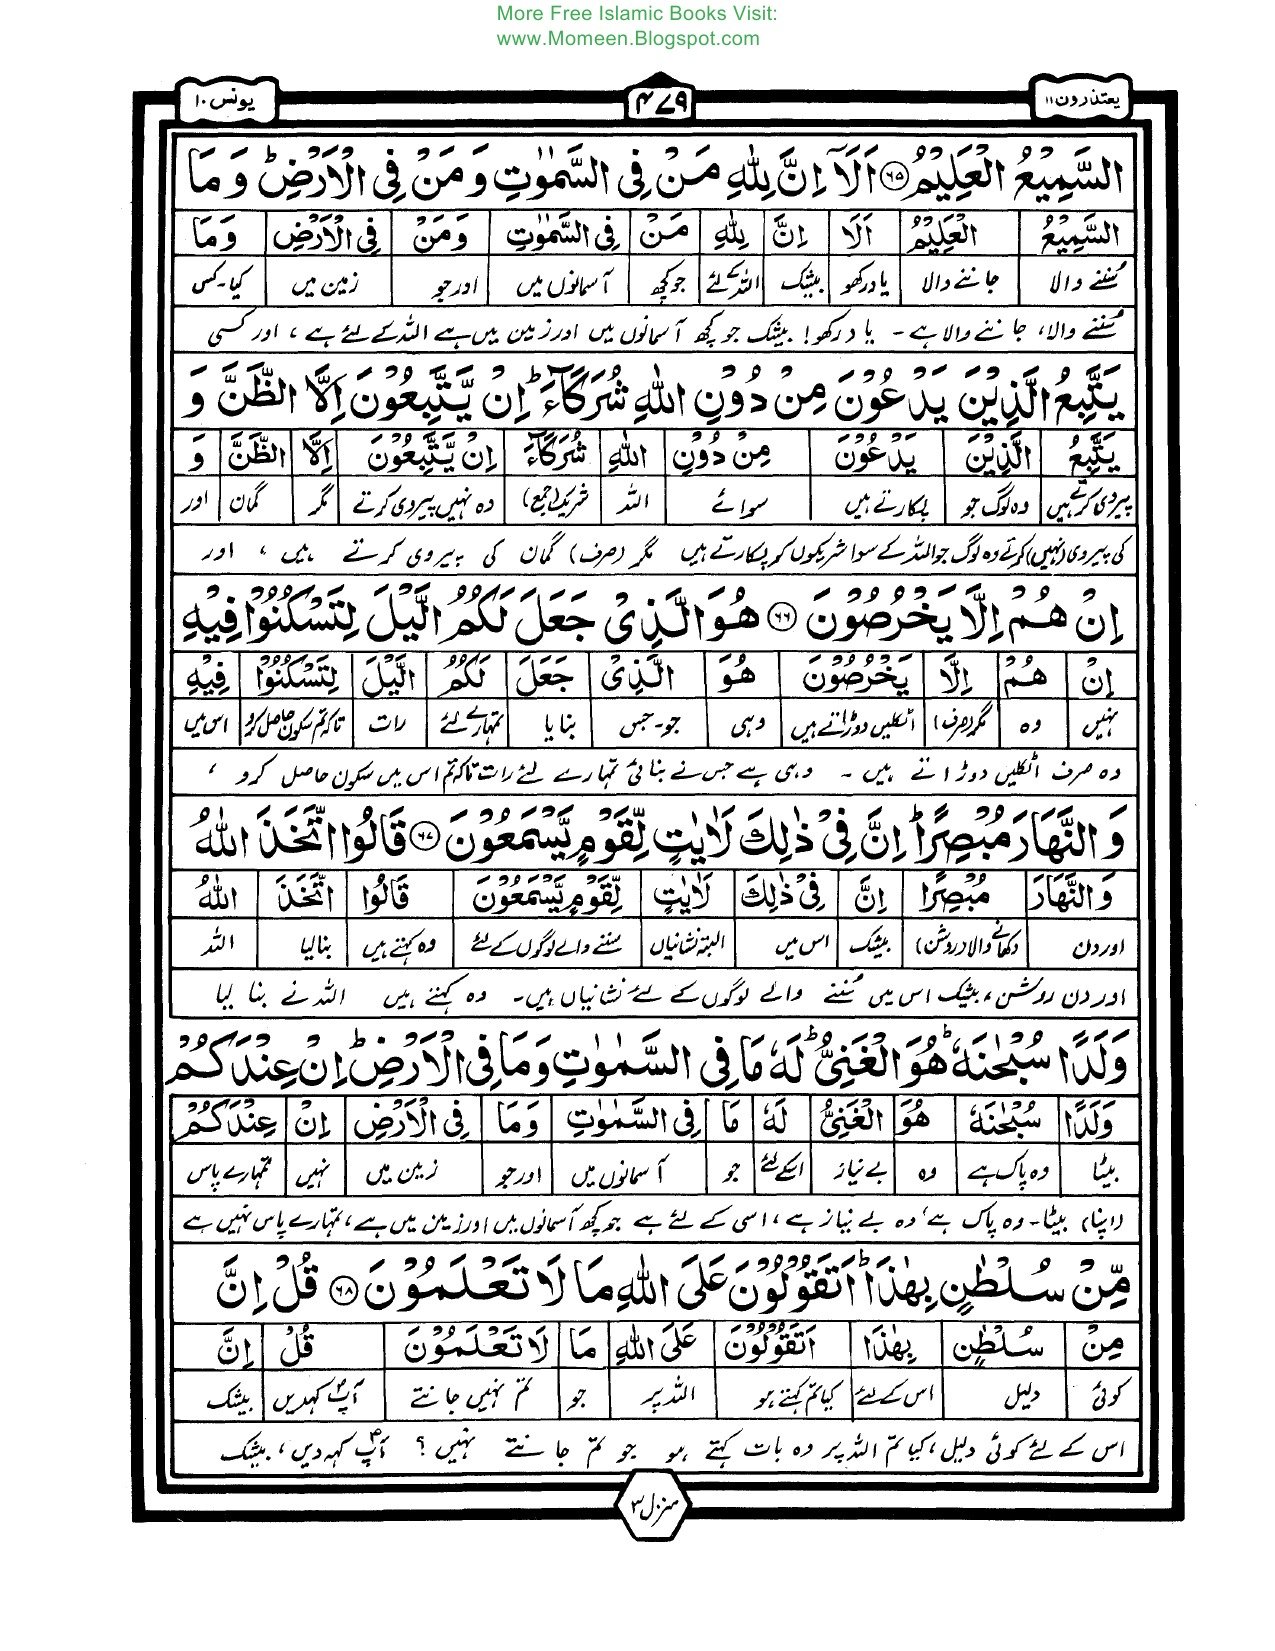 More Free Islamic Books Visit:
www.Momeen.Blogspot.com
یعتذرون ۱۱
۴۷۹
یونس ۱۰
السَّمِیْعُ الْعَلِیْمُ ۶۵ اَلَاۤ اِنَّ لِلّٰهِ مَنْ فِی السَّمٰوٰتِ وَ مَنْ فِی الْاَرْضِ ؕ وَ مَا
السَّمِیْعُ الْعَلِیْمُ اَلَا اِنَّ لِلّٰهِ مَنْ فِی السَّمٰوٰتِ وَمَنْ فِی الْاَرْضِ وَمَا
سُننے والا جاننے والا یاد رکھو بیشک اللہ کے لئے جو کچھ آسمانوں میں اور جو زمین میں کیا۔کس
سُننے والا، جاننے والا ہے۔ یاد رکھو! بیشک جو کچھ آسمانوں میں اور زمین میں ہے اللہ کے لئے ہے، اور کسی
یَتَّبِعُ الَّذِیْنَ یَدْعُوْنَ مِنْ دُوْنِ اللّٰهِ شُرَكَآءَ ؕ اِنْ یَّتَّبِعُوْنَ اِلَّا الظَّنَّ وَ
یَتَّبِعُ الَّذِیْنَ یَدْعُوْنَ مِنْ دُوْنِ اللّٰهِ شُرَكَآءَ اِنْ یَّتَّبِعُوْنَ اِلَّا الظَّنَّ وَ
پیروی کرتے ہیں وہ لوگ جو پکارتے ہیں سوائے اللہ شریک (جمع) وہ نہیں پیروی کرتے مگر گمان اور
کی پیروی (نہیں) کرتے وہ لوگ جو اللہ کے سوا شریکوں کو پکارتے ہیں مگر (صرف) گمان کی پیروی کرتے ہیں، اور
اِنْ هُمْ اِلَّا یَخْرُصُوْنَ ۶۶ هُوَ الَّذِیْ جَعَلَ لَكُمُ الَّیْلَ لِتَسْكُنُوْا فِیْهِ
اِنْ هُمْ اِلَّا یَخْرُصُوْنَ هُوَ الَّذِیْ جَعَلَ لَكُمُ الَّیْلَ لِتَسْكُنُوْا فِیْهِ
نہیں وہ مگر (صرف) اٹکلیں دوڑاتے ہیں وہی جو۔جس بنایا تمہارے لئے رات تاکہ تم سکون حاصل کرو اس میں
وہ صرف اٹکلیں دوڑاتے ہیں۔ وہی ہے جس نے بنائی تمہارے لئے رات تاکہ تم اس میں سکون حاصل کرو،
وَ النَّهَارَ مُبْصِرًا ؕ اِنَّ فِیْ ذٰلِكَ لَاٰیٰتٍ لِّقَوْمٍ یَّسْمَعُوْنَ ۶۷ قَالُوا اتَّخَذَ اللّٰهُ
وَ النَّهَارَ مُبْصِرًا اِنَّ فِیْ ذٰلِكَ لَاٰیٰتٍ لِّقَوْمٍ یَّسْمَعُوْنَ قَالُوا اتَّخَذَ اللّٰهُ
اور دن دکھانے والا (روشن) بیشک اس میں البتہ نشانیاں سننے والے لوگوں کے لئے وہ کہتے ہیں بنالیا اللہ
اور دن روشن، بیشک اس میں سُننے والے لوگوں کے لئے نشانیاں ہیں۔ وہ کہتے ہیں اللہ نے بنا لیا
وَلَدًا سُبْحٰنَهٗ ؕ هُوَ الْغَنِیُّ ؕ لَهٗ مَا فِی السَّمٰوٰتِ وَ مَا فِی الْاَرْضِ ؕ اِنْ عِنْدَكُمْ
وَلَدًا سُبْحٰنَهٗ هُوَ الْغَنِیُّ لَهٗ مَا فِی السَّمٰوٰتِ وَمَا فِی الْاَرْضِ اِنْ عِنْدَكُمْ
بیٹا وہ پاک ہے وہ بے نیاز اسکے لئے جو آسمانوں میں اور جو زمین میں نہیں تمہارے پاس
(اپنا) بیٹا۔ وہ پاک ہے، وہ بے نیاز ہے، اسی کے لئے ہے جو کچھ آسمانوں میں اور زمین میں ہے، تمہارے پاس نہیں ہے
مِّنْ سُلْطٰنٍۭ بِهٰذَا ؕ اَتَقُوْلُوْنَ عَلَى اللّٰهِ مَا لَا تَعْلَمُوْنَ ۶۸ قُلْ اِنَّ
مِنْ سُلْطٰنٍ بِهٰذَا اَتَقُوْلُوْنَ عَلَى اللّٰهِ مَا لَا تَعْلَمُوْنَ قُلْ اِنَّ
کوئی دلیل اس کے لئے کیا تم کہتے ہو اللہ پر جو تم نہیں جانتے آپؐ کہدیں بیشک
اس کے لئے کوئی دلیل، کیا تم اللہ پر وہ بات کہتے ہو جو تم جانتے نہیں؟ آپؐ کہہ دیں، بیشک
منزل ۳